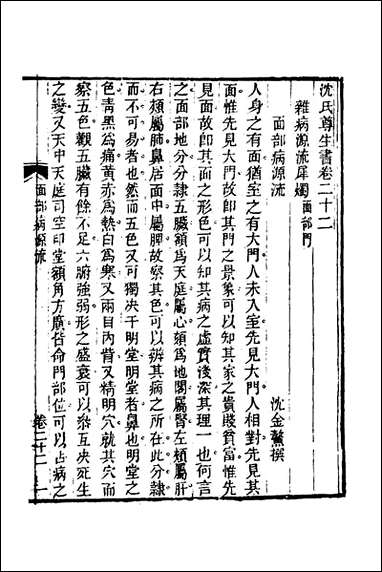 沈氏尊生書卷二十二
雜病源流犀燭面部門
沈金鰲撰
面部病源流
人身之有面猶室之有大門人未入室先見大門人相對先見其
面惟先見大門故卽其門之景象可以知其家之貴賤貧富惟先
見面故卽其面之形色可以知其病之虛實淺深其理一也何言
之面部地分分隸五臟額爲天庭屬心頦爲地閣屬腎左頰屬肝
右頰屬肺鼻居面中屬脾故察其色可以辨其病之所在此分隸
而不可易者也然而五色又可獨决于明堂明堂者鼻也明堂之
色靑黑爲痛黃赤爲熱白爲寒又兩目內眥又精明穴就其穴而
察五色觀五臟有餘不足六腑強弱形之盛衰可以叅互决死生
之變又天中天庭司空印堂額角方廣皆命門部位可以占病之
面部病源流
卷二十二
一